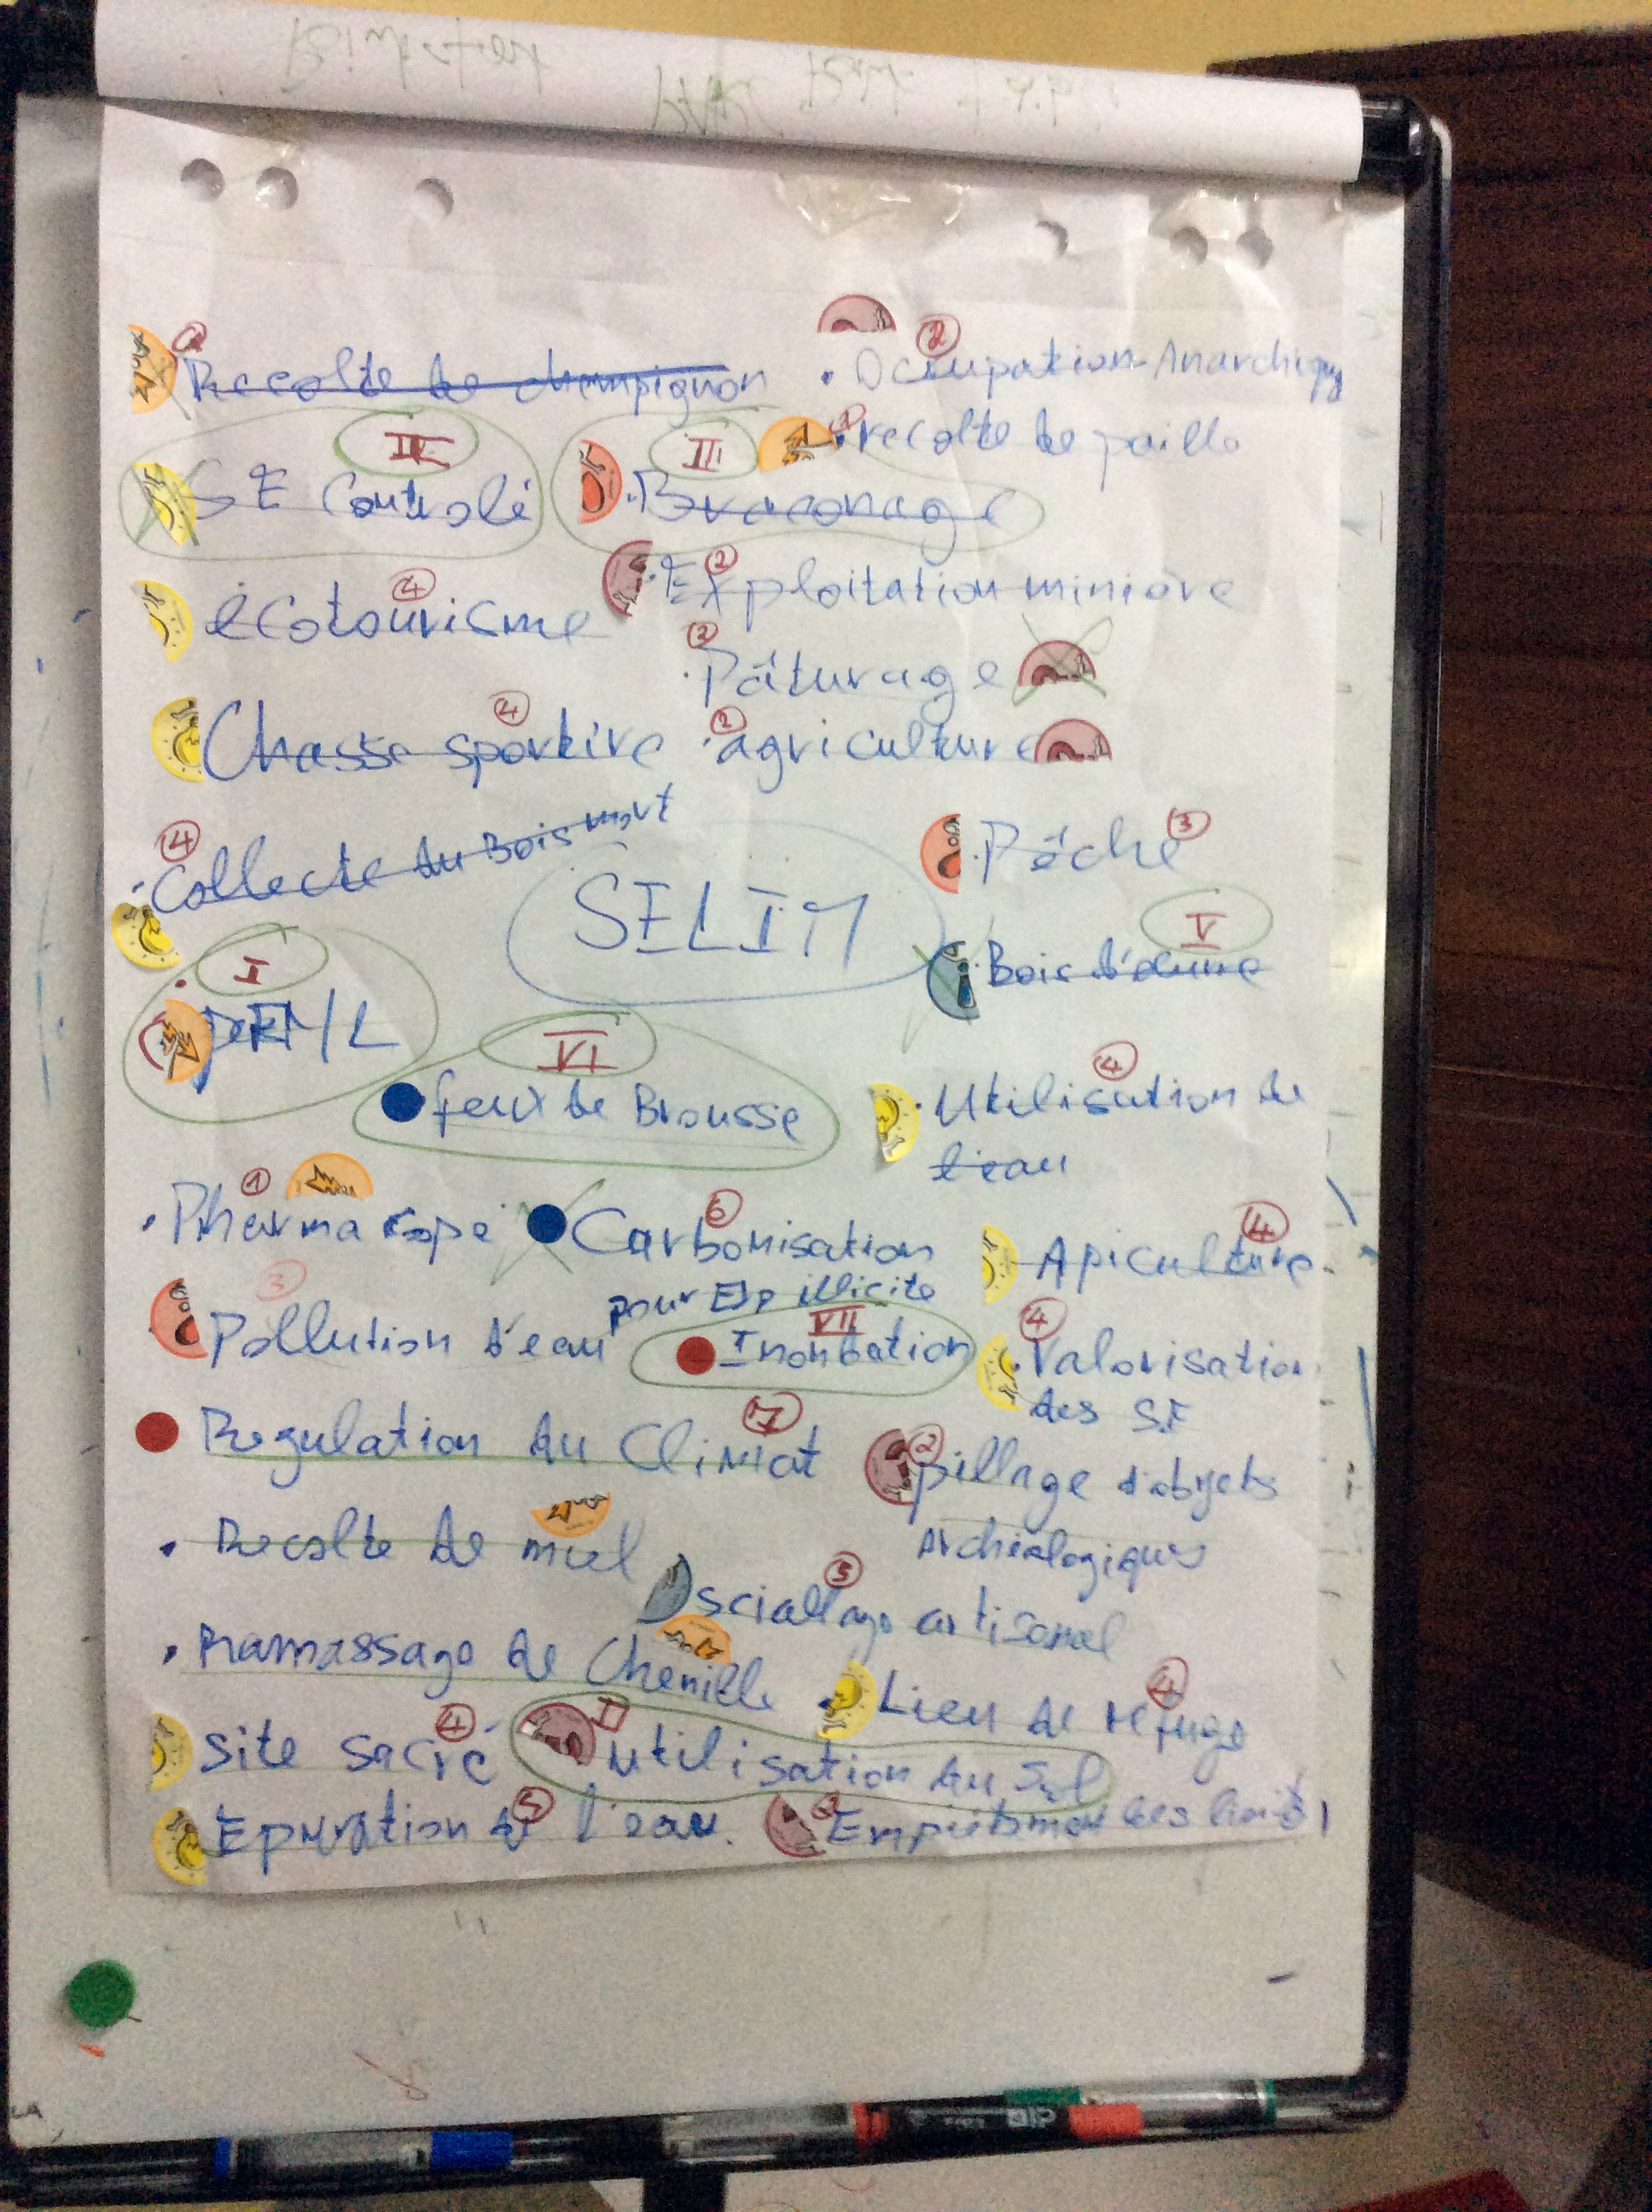 Recolte de champignon
② . Occupation Anarchique
① . recolte de paille
IV
SE Controlé
III
. Braconage
④ écotourisme
② . Exploitation minière
② . Pâturage
④ Chasse sportive
② . agriculture
④ . Collecte du Bois mort
SELIM
. Pêche ③
V
. Bois d'œuvre
I
VI
feux de Brousse
④ . Utilisation de
l'eau
① . Pharmacopé
⑥ Carbonisation
④ Apiculture
③ Pollution d'eau
pour Exp illicite
VII
Inondation
④ . Valorisation
des S.E
Regulation du Climat ⑦
② pillage d'objets
Archéologiques
. Recolte de miel
⑤ sciallage artisanal
. Ramassage de Chenille
. Lieu de refuge ④
site sacré ④
II
utilisation du Sol
Epuration de l'eau. ⑤
② Empietement des limites